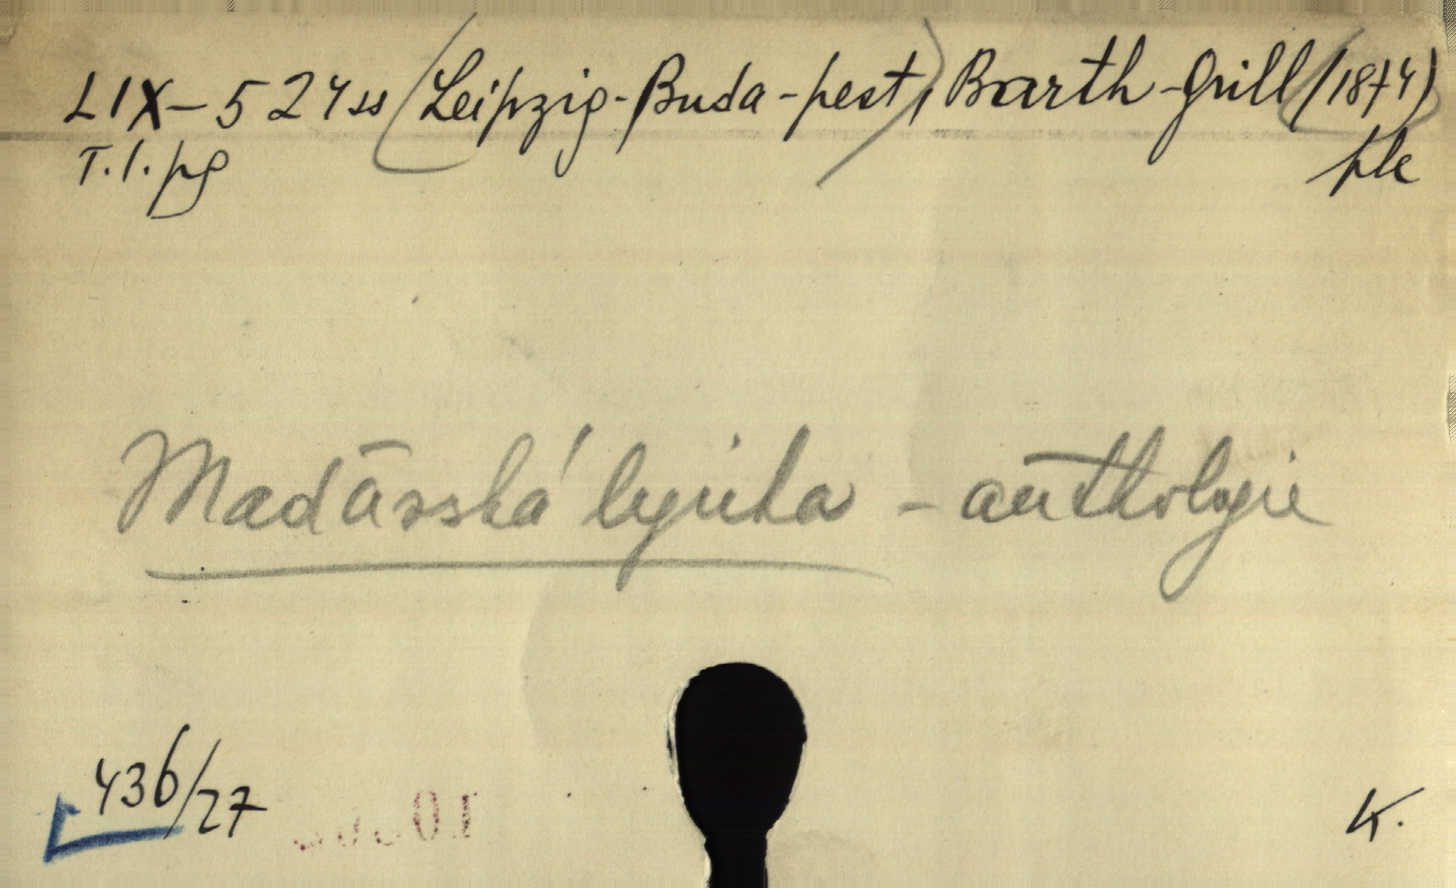 LIX-524 ss (Leipzig-Buda-pest), Barth-Grill (1874)
T.l.pg ple
Maďarská lyrika - anthologie
436/27
K.